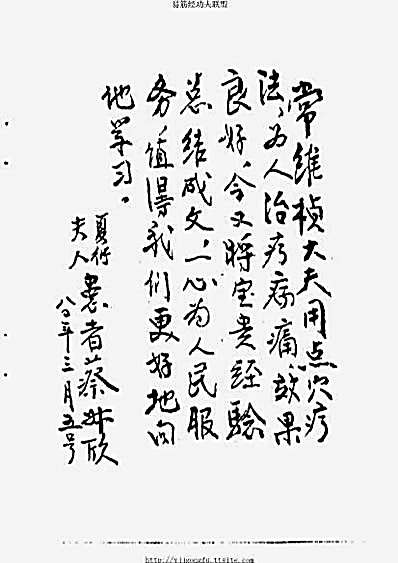 易筋经功夫联盟
常维桢大夫用点穴疗
法,为人治疗病痛,效果
良好,今又将宝贵经验
总结成文,一心为人民服
务,值得我们更好地向
他学习。
夏衍
夫人
患者蔡淑欣
八〇年三月五号
http://yijgongfu.ttsite.com